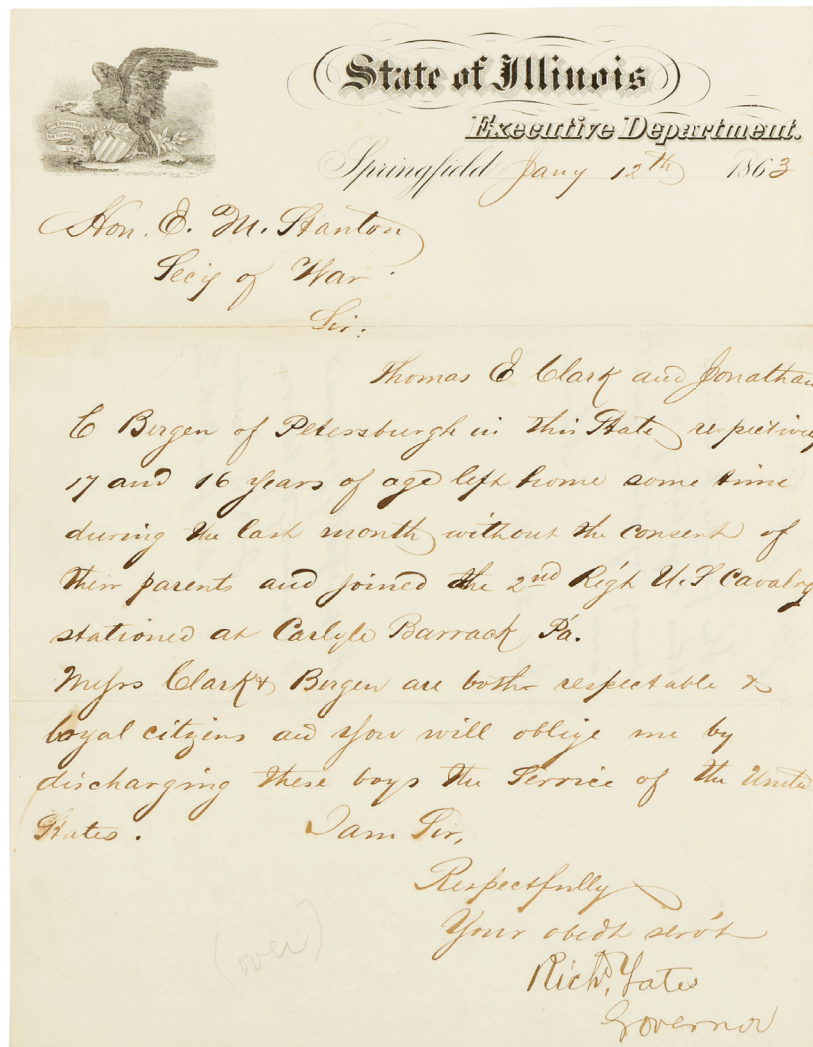 State of Illinois
Executive Department.
Springfield Jany 12th 1863
Hon. E. M. Stanton
Secy of War.
Sir.
Thomas E Clark and Jonathan
C Bergen of Petersburgh in this State respectively
17 and 16 years of age left home some time
during the last month without the consent of
their parents and joined the 2nd Regt U.S Cavalry
stationed at Carlyle Barrack Pa.
Messrs Clark & Bergen are both respectable &
loyal citizens and you will oblige me by
discharging these boys the Service of the United
States. I am Sir,
Respectfully
Your obedt servt
Richd. Yates
Governor
(over)